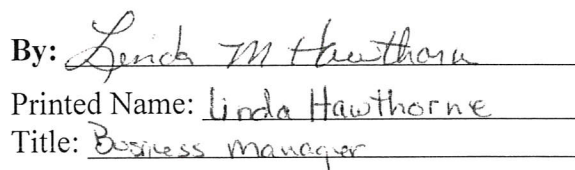 By: Linda M Hawthorn
Printed Name: Linda Hawthorne
Title: Business manager